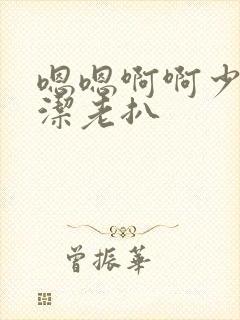 嗯嗯啊啊少
潔老扒
曾振華